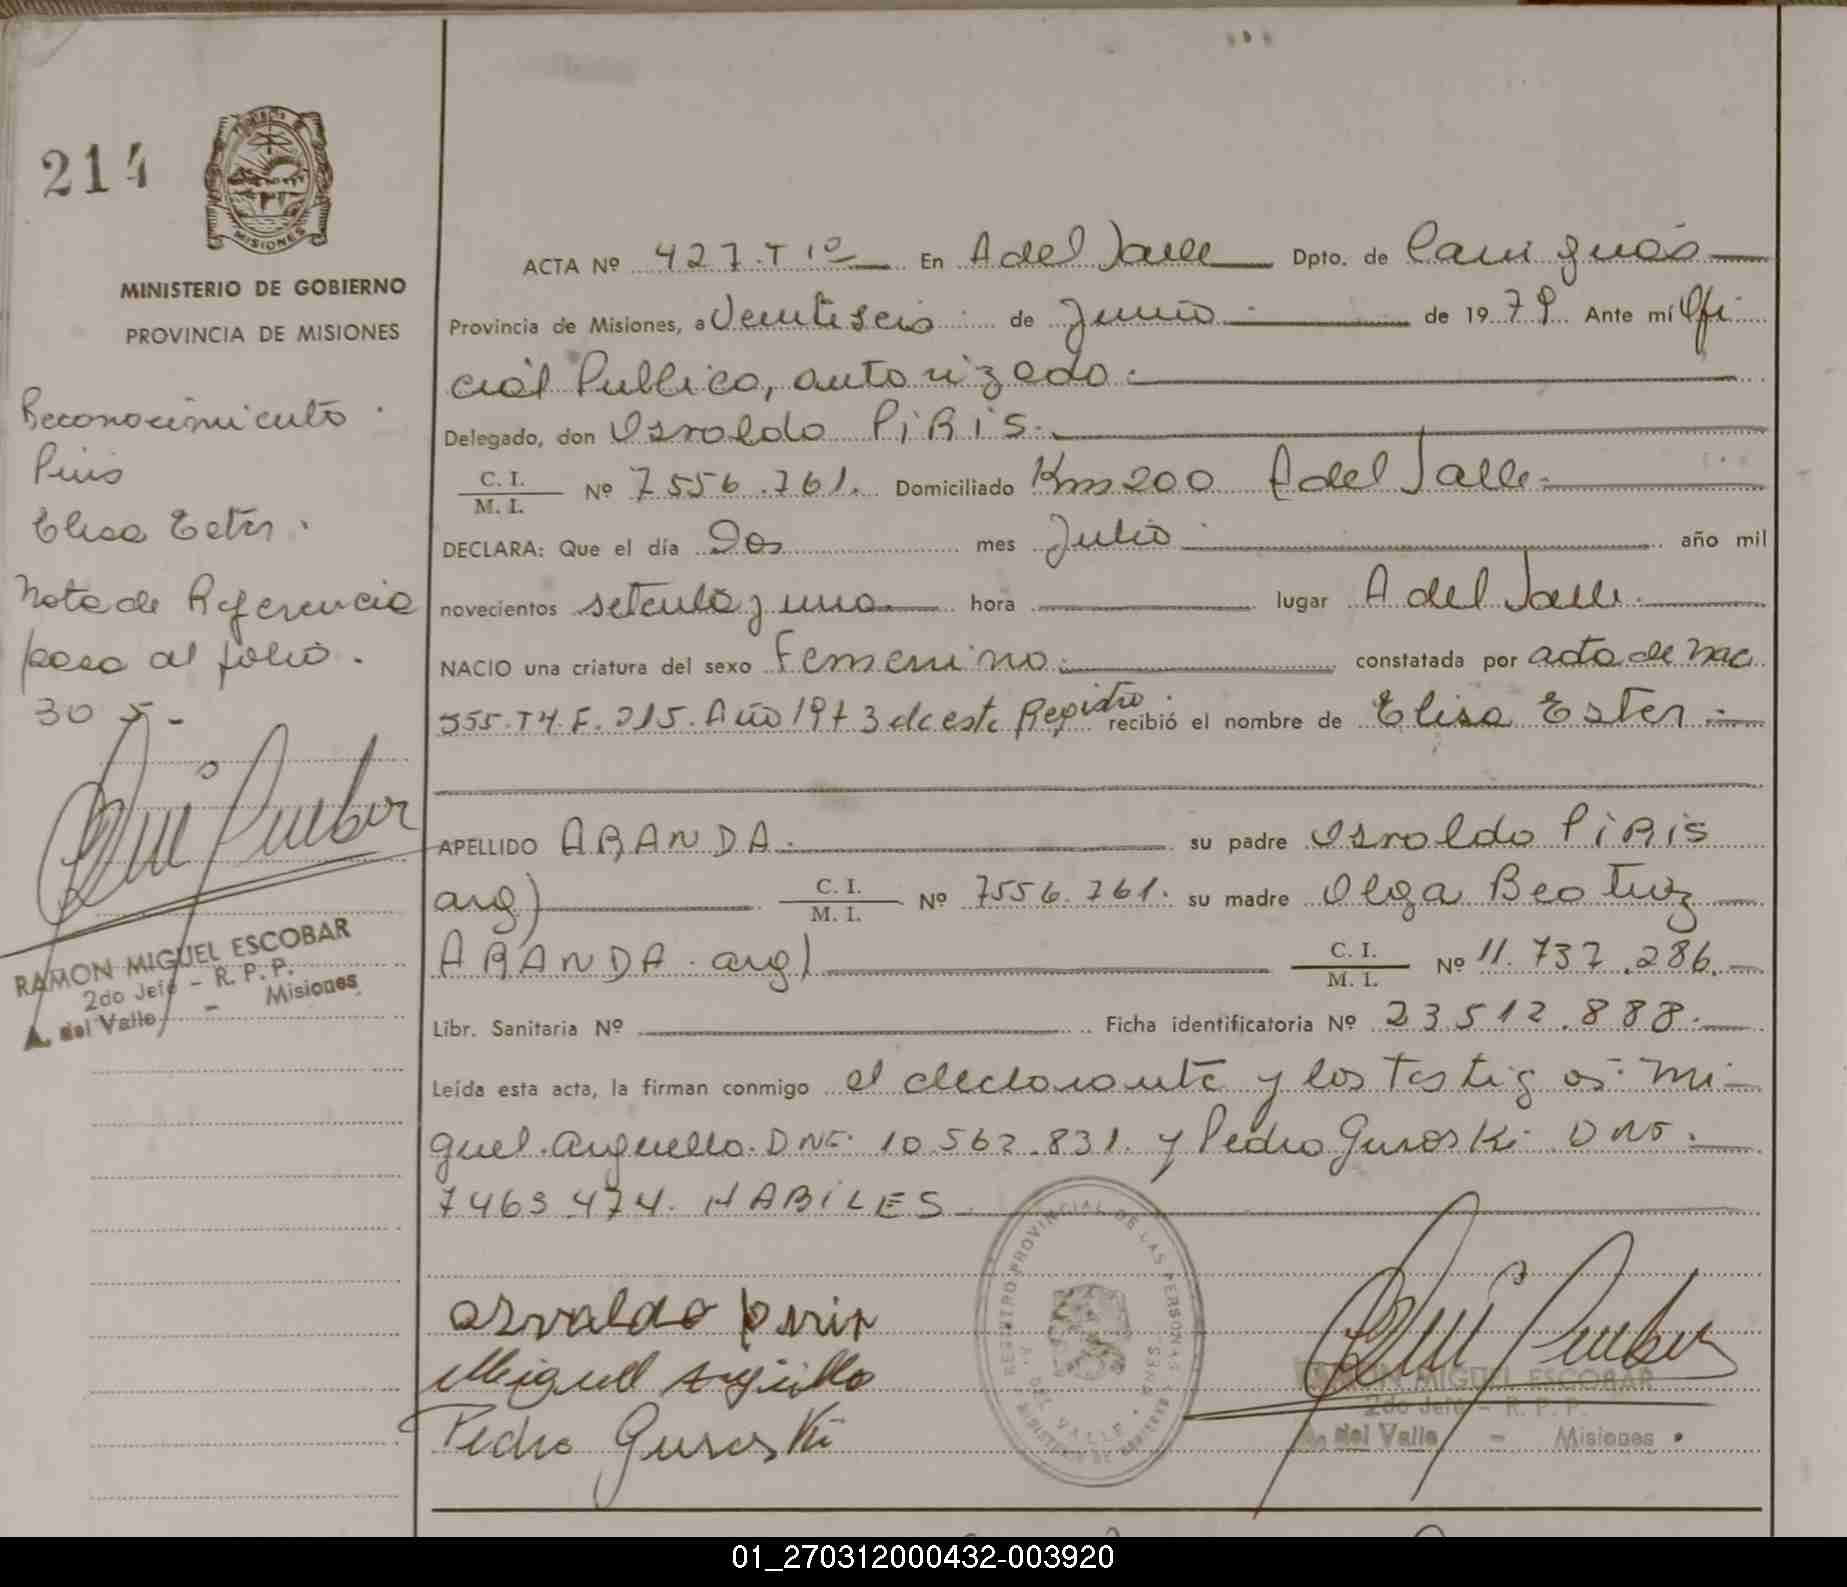 214
MISIONES
MINISTERIO DE GOBIERNO
PROVINCIA DE MISIONES
Reconocimiento
Piris
Elisa Ester.
Nota de Referencia
pasa al folio.
305-
RAMON MIGUEL ESCOBAR
2do Jefe - R. P. P.
A. del Valle - Misiones
ACTA Nº 427. T 1º En A del Valle Dpto. de Cainguás
Provincia de Misiones, a Veintiseis de Junio de 1979 Ante mí Ofi
cial Publico, autorizado.
Delegado, don Osvaldo PIRIS.
C. I. / M. I. Nº 7556.761. Domiciliado Km 200 A del Valle.
DECLARA: Que el día Dos mes Julio año mil
novecientos setenta y uno. hora lugar A del Valle.
NACIO una criatura del sexo Femenino. constatada por acta de nac
555. T4. F. 215. Año 1973 de este Registro. recibió el nombre de Elisa Ester.
APELLIDO ARANDA. su padre Osvaldo PIRIS
arg) C. I. / M. I. Nº 7556.761. su madre Olga Beatriz
ARANDA. arg) C. I. / M. I. Nº 11.737.286.
Libr. Sanitaria Nº Ficha identificatoria Nº 23512.888.
Leída esta acta, la firman conmigo el declarante y los testigos: Mi-
guel Arguello. DNI. 10.562.831. y Pedro Guroski DNI.
7463.474. HABILES
REGISTRO PROVINCIAL DE LAS PERSONAS
A. DEL VALLE
osvaldo piris
Miguel Arguello
Pedro Guroski
RAMON MIGUEL ESCOBAR
2do Jefe - R. P. P.
A. del Valle - Misiones
01_270312000432-003920